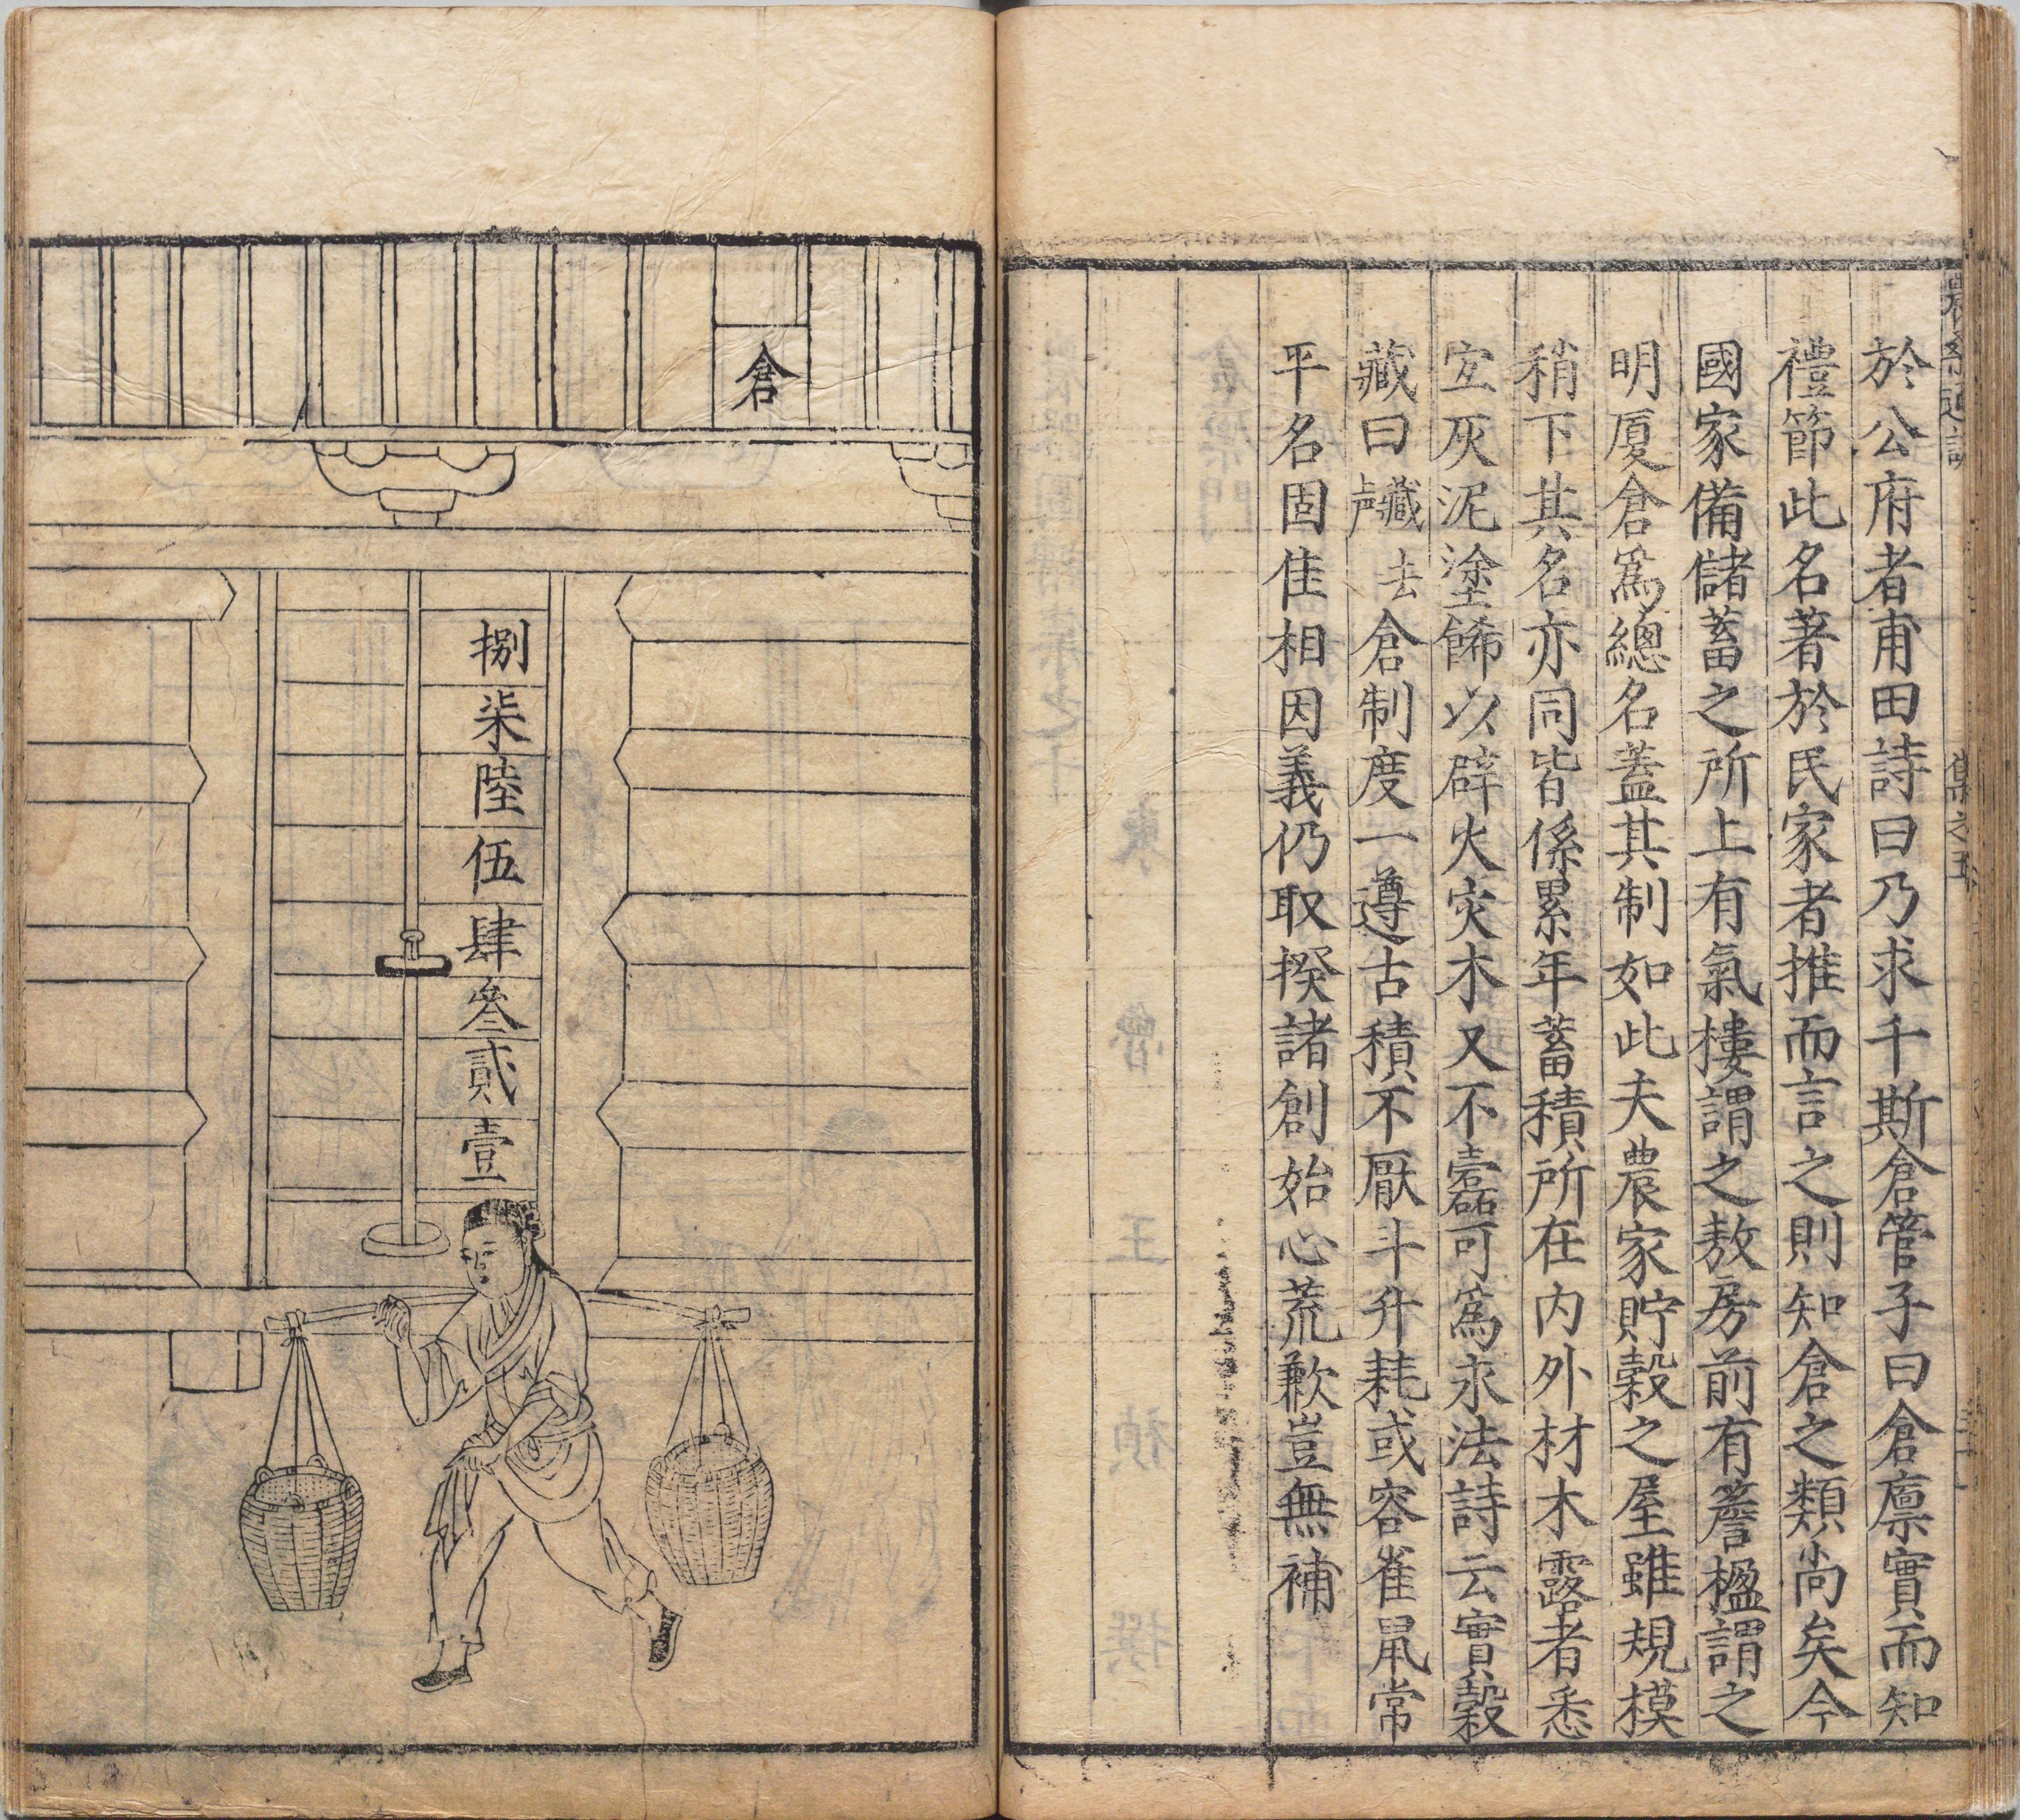 於公府者甫田詩曰乃求千斯倉管子曰倉廪實而知
禮節此名著於民家者推而言之則知倉之類尚矣今
國家備儲蓄之所上有氣樓謂之敖房前有簷楹謂之
明厦倉爲總名蓋其制如此夫農家貯穀之屋雖規模
稍下其名亦同皆係累年蓄積所在内外材木露者悉
宐灰泥塗餙以辟火灾木又不蠹可爲永法詩云實穀
藏曰 藏去倉制度一遵古積不厭斗升耗或容雀鼠常
平名固隹相因義仍取揆諸創始心荒歉豈無補
倉
捌
柒
陸
伍
肆
叄
貳
壹